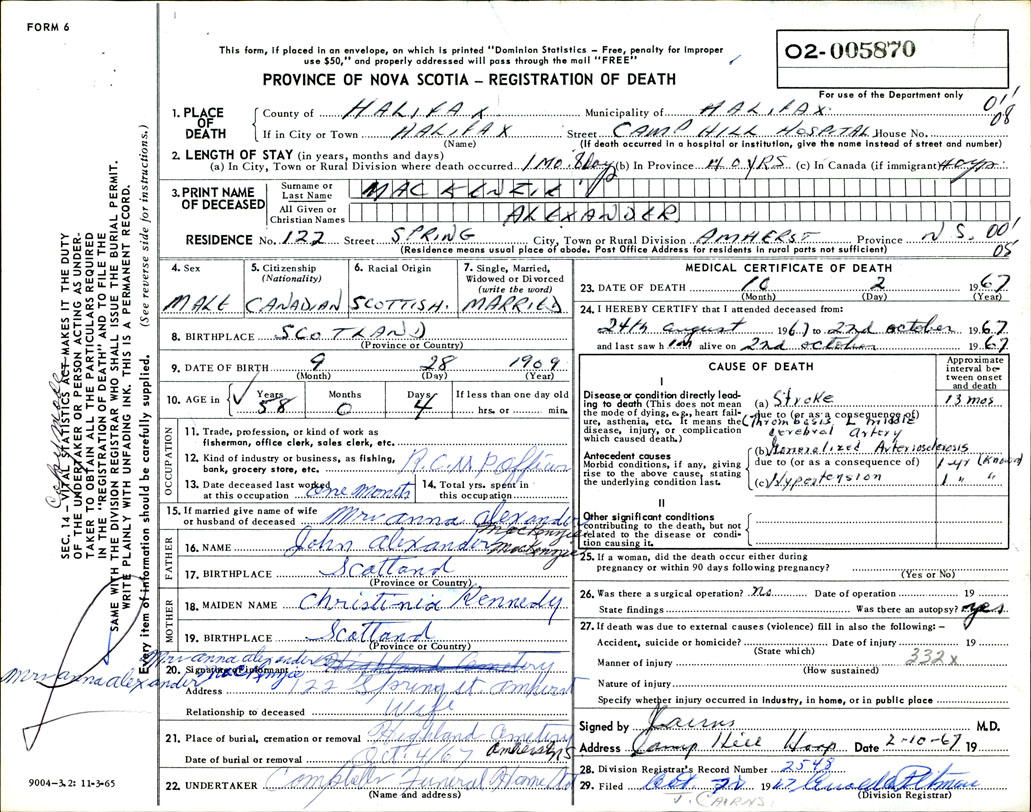 FORM 6
This form, if placed in an envelope, on which is printed "Dominion Statistics – Free, penalty for improper
use $50," and properly addressed will pass through the mail "FREE"
PROVINCE OF NOVA SCOTIA – REGISTRATION OF DEATH
02-005870
For use of the Department only
01'
08
1. PLACE OF DEATH
County of HALIFAX Municipality of HALIFAX
If in City or Town HALIFAX Street CAMP HILL HOSPITAL House No.
(Name) (If death occurred in a hospital or institution, give the name instead of street and number)
2. LENGTH OF STAY (in years, months and days)
(a) In City, Town or Rural Division where death occurred 1 MO. 8 day (b) In Province 40 YRS (c) In Canada (if immigrant) 40 yrs.
3. PRINT NAME OF DECEASED
Surname or Last Name MACKENZIE
All Given or Christian Names ALEXANDER
RESIDENCE No. 122 Street SPRING City, Town or Rural Division AMHERST Province N S. 00'
05
(Residence means usual place of abode. Post Office Address for residents in rural parts not sufficient)
4. Sex
MALE
5. Citizenship (Nationality)
CANADIAN
6. Racial Origin
SCOTTISH.
7. Single, Married, Widowed or Divorced (write the word)
MARRIED
8. BIRTHPLACE SCOTLAND
(Province or Country)
9. DATE OF BIRTH 9 28 1909
(Month) (Day) (Year)
10. AGE in Years 58 Months 0 Days 4 If less than one day old
hrs. or min.
OCCUPATION
11. Trade, profession, or kind of work as
fisherman, office clerk, sales clerk, etc.
12. Kind of industry or business, as fishing,
bank, grocery store, etc. R.C.M.P officer
13. Date deceased last worked
at this occupation one month
14. Total yrs. spent in
this occupation
15. If married give name of wife
or husband of deceased Mrs anna alexander MacKenzie
FATHER
16. NAME John alexander MacKenzie
17. BIRTHPLACE Scotland
(Province or Country)
MOTHER
18. MAIDEN NAME Christinia Kennedy
19. BIRTHPLACE Scotland
(Province or Country)
Mrs anna alexander MacKenzie
20. Signature of informant Highland Cemetery
Address 122 Spring st. amherst
Relationship to deceased Wife
21. Place of burial, cremation or removal Highland Cemetery
Amherst NS
Date of burial or removal Oct 4/67
22. UNDERTAKER Campbells Funeral Home Ltd
(Name and address)
MEDICAL CERTIFICATE OF DEATH
23. DATE OF DEATH 10 2 1967
(Month) (Day) (Year)
24. I HEREBY CERTIFY that I attended deceased from:
24th august 1967 to 2nd october 1967
and last saw him alive on 2nd october 1967
CAUSE OF DEATH
Approximate interval between onset and death
I
Disease or condition directly leading to death (This does not mean the mode of dying, e.g., heart failure, asthenia, etc. It means the disease, injury, or complication which caused death.)
(a) Stroke 13 mos
due to (or as a consequence of)
(Thrombosis L middle
cerebral Artery
Antecedent causes
Morbid conditions, if any, giving rise to the above cause, stating the underlying condition last.
(b) Generalized Arteriosclerosis
due to (or as a consequence of) (known)
(c) Hypertension 1 " "
II
Other significant conditions
contributing to the death, but not related to the disease or condition causing it.
25. If a woman, did the death occur either during
pregnancy or within 90 days following pregnancy?
(Yes or No)
26. Was there a surgical operation? No Date of operation 19
State findings Was there an autopsy? yes
27. If death was due to external causes (violence) fill in also the following: –
Accident, suicide or homicide? Date of injury 19
(State which)
Manner of injury 332x
(How sustained)
Nature of injury
Specify whether injury occurred in industry, in home, or in public place
Signed by J Cairns M.D.
Address Camp Hill Hosp Date 2-10-67 19
28. Division Registrar's Record Number 2548
29. Filed Oct. 1967
(Division Registrar)
J. CAIRNS.
SEC. 14 – VITAL STATISTICS ACT MAKES IT THE DUTY
OF THE UNDERTAKER OR PERSON ACTING AS UNDER-
TAKER TO OBTAIN ALL THE PARTICULARS REQUIRED
IN THE "REGISTRATION OF DEATH" AND TO FILE THE
SAME WITH THE DIVISION REGISTRAR WHO SHALL ISSUE THE BURIAL PERMIT.
WRITE PLAINLY WITH UNFADING INK. THIS IS A PERMANENT RECORD.
Every item of information should be carefully supplied. (See reverse side for instructions.)
Mrs anna alexander MacKenzie
9004–3.2: 11-3-65